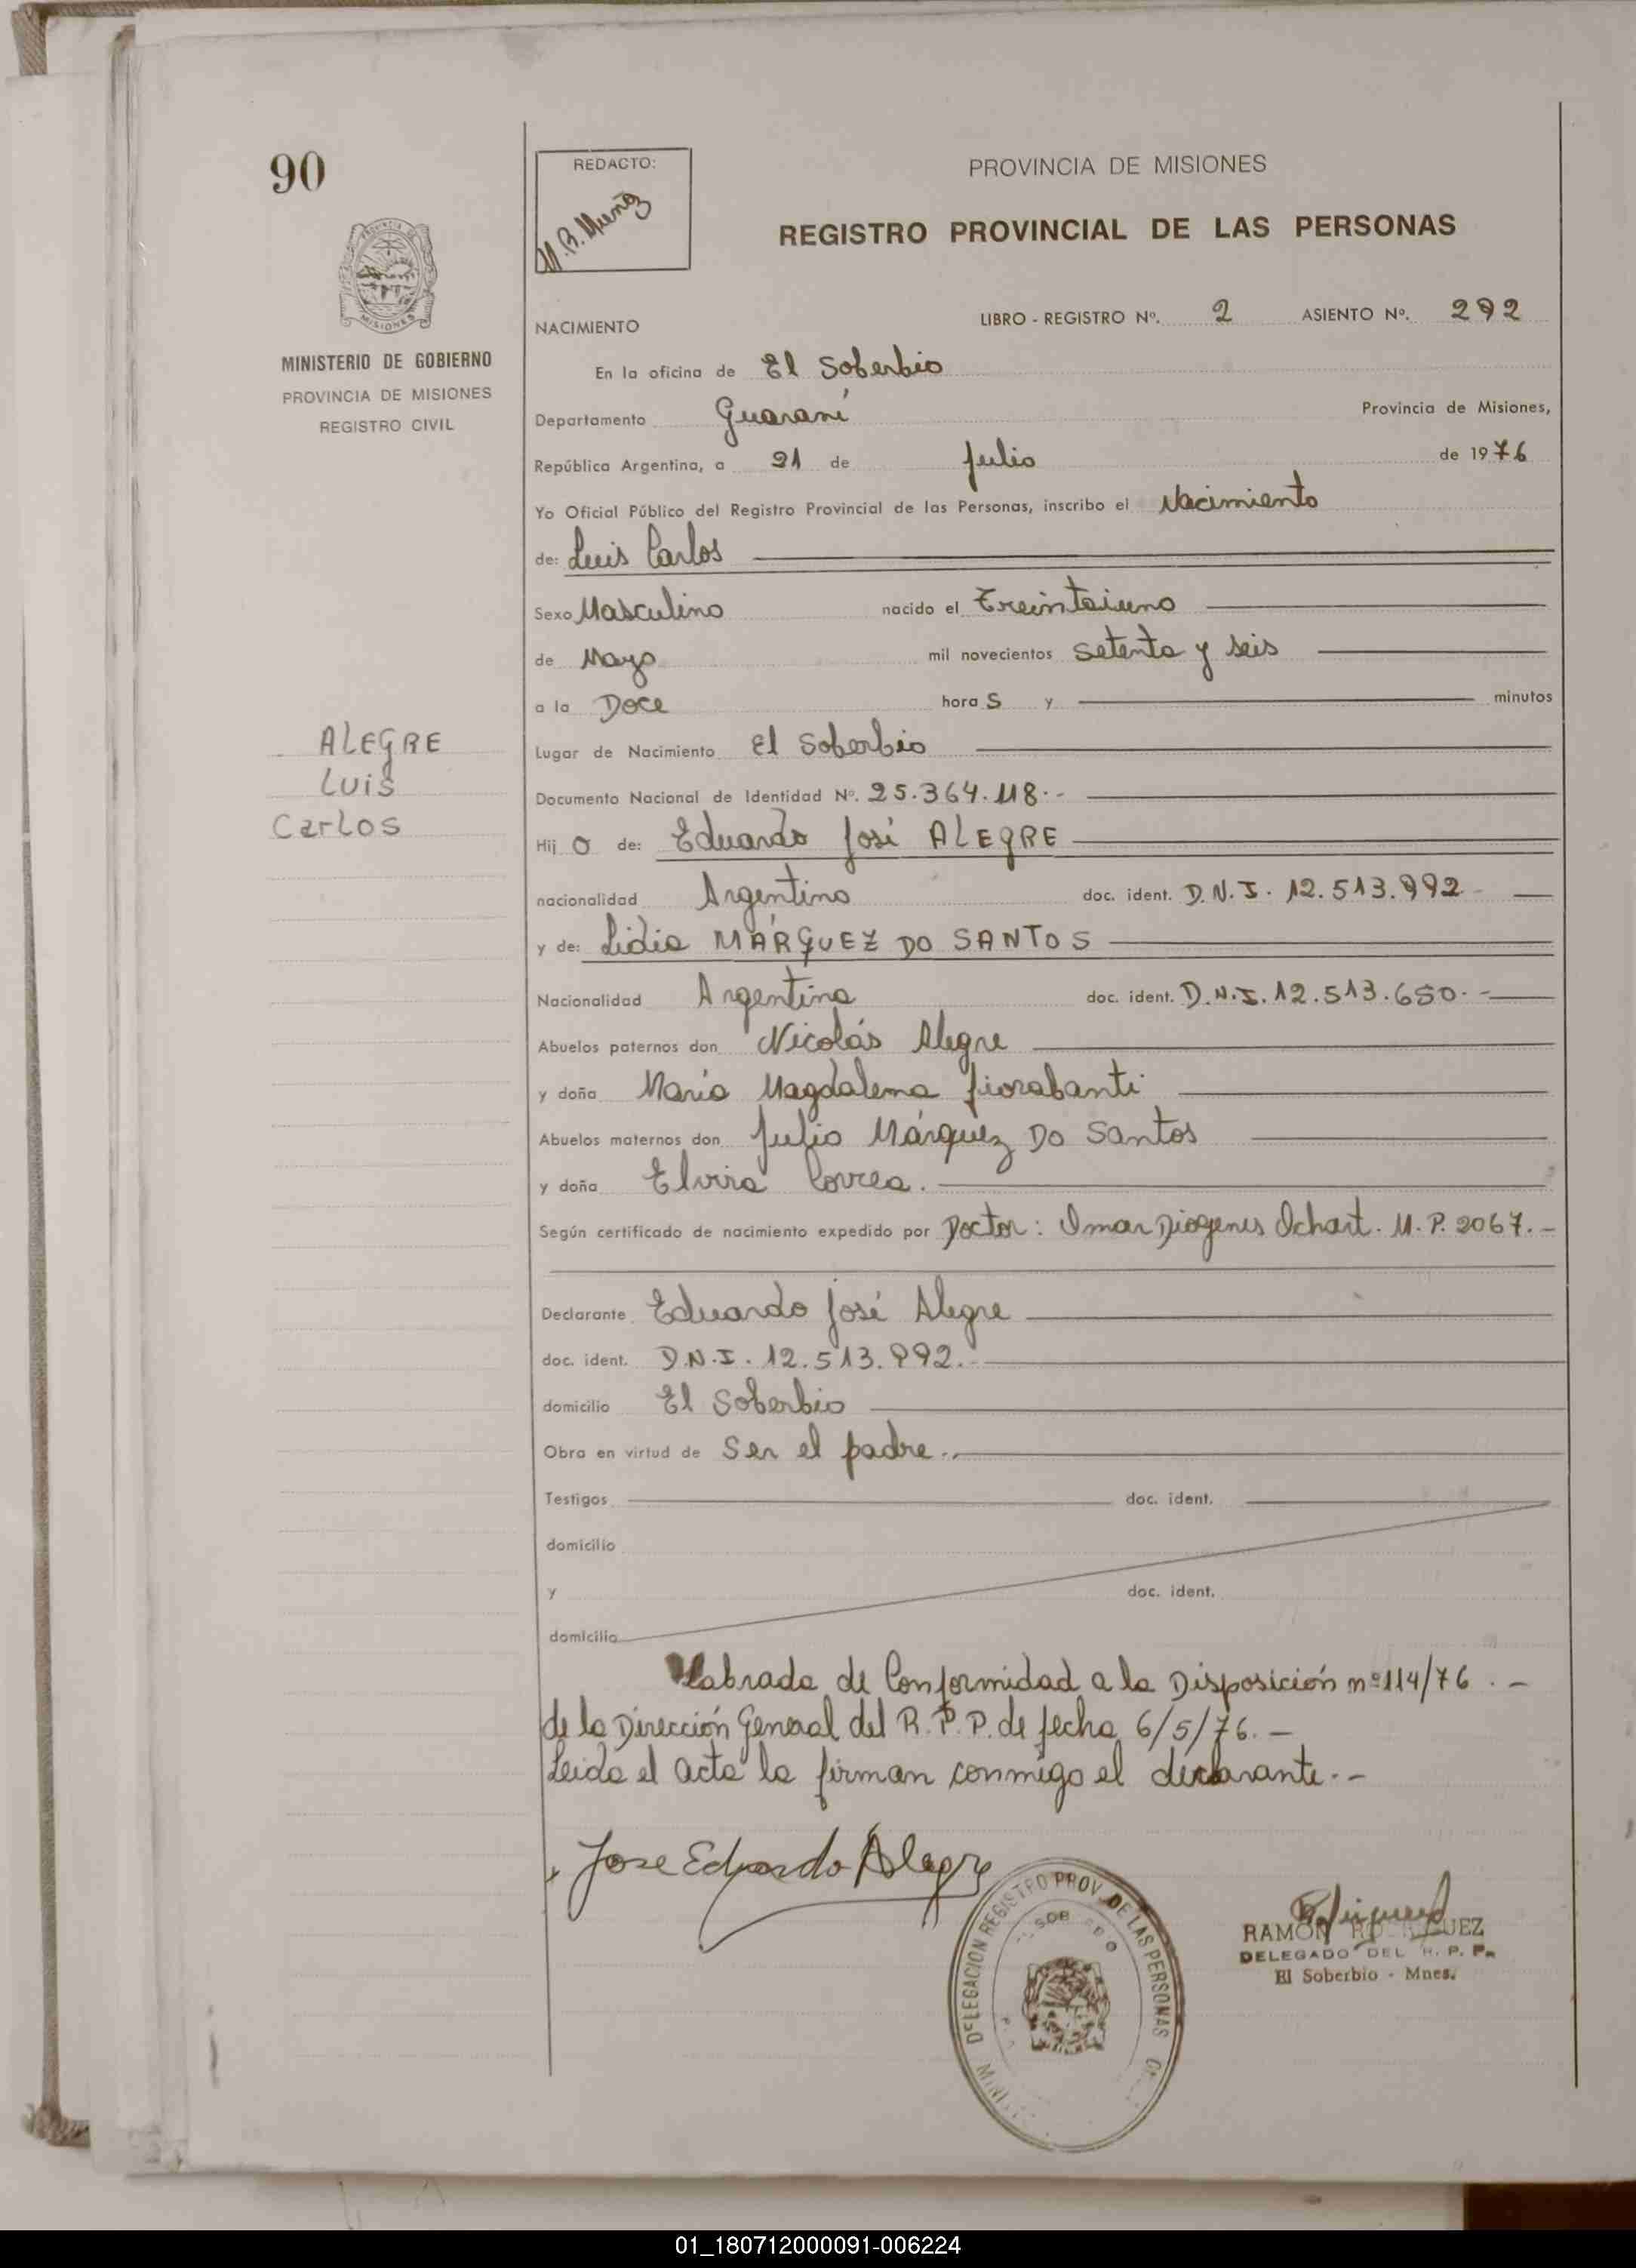 90
REDACTO:
PROVINCIA DE MISIONES
REGISTRO PROVINCIAL DE LAS PERSONAS
MISIONES
MINISTERIO DE GOBIERNO
PROVINCIA DE MISIONES
REGISTRO CIVIL
NACIMIENTO LIBRO - REGISTRO Nº. 2 ASIENTO Nº. 292
En la oficina de El Soberbio
Departamento Guaraní Provincia de Misiones,
República Argentina, a 21 de Julio de 1976
Yo Oficial Público del Registro Provincial de las Personas, inscribo el Nacimiento
de: Luis Carlos
Sexo Masculino nacido el Treintaiuno
de Mayo mil novecientos setenta y seis
a la Doce hora S y minutos
ALEGRE
Luis
Carlos
Lugar de Nacimiento El Soberbio
Documento Nacional de Identidad Nº. 25.364.118.-
Hij o de: Eduardo José ALEGRE
nacionalidad Argentino doc. ident. D.N.I. 12.513.992.-
y de: Lidia MÁRQUEZ DO SANTOS
Nacionalidad Argentina doc. ident. D.N.I. 12.513.650.-
Abuelos paternos don Nicolás Alegre
y doña María Magdalena Fiorabanti
Abuelos maternos don Julio Márquez Do Santos
y doña Elvira Correa.
Según certificado de nacimiento expedido por Doctor: Omar Diogenes Ichart. M.P. 2067.-
Declarante Eduardo José Alegre
doc. ident. D.N.I. 12.513.992.-
domicilio El Soberbio
Obra en virtud de Ser el padre.-
Testigos doc. ident.
domicilio
y doc. ident.
domicilio
Labrada de Conformidad a la Disposición nº 114/76.-
de la Dirección General del R.P.P. de fecha 6/5/76.-
Leida el acta la firman conmigo el declarante.-
Jose Eduardo Alegre
DELEGACION REGISTRO PROV. DE LAS PERSONAS
RAMÓN
DELEGADO DEL R. P. P.
El Soberbio - Mnes.
01_180712000091-006224